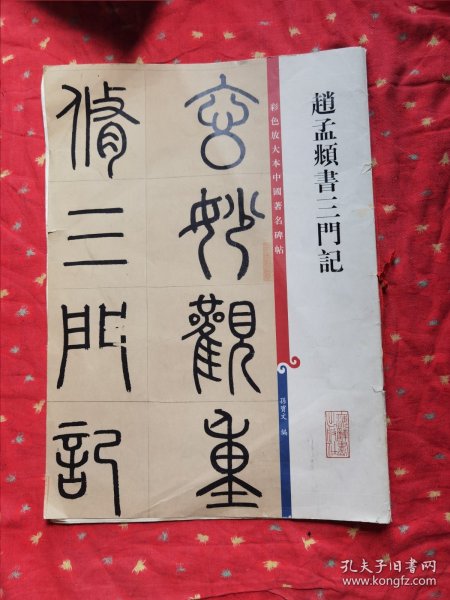 趙孟頫書三門記
彩色放大本中國著名碑帖
孫寶文 編
玄妙觀重
脩三門記
孔夫子旧书网
www.kongfz.com